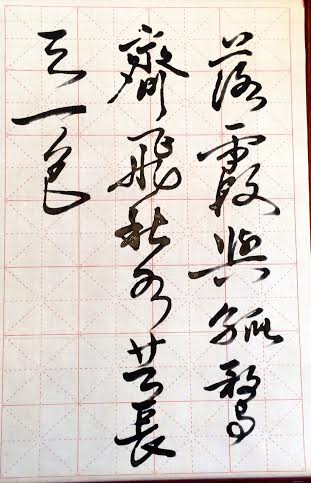 落霞與孤鶩
齊飛秋水共長
天一色